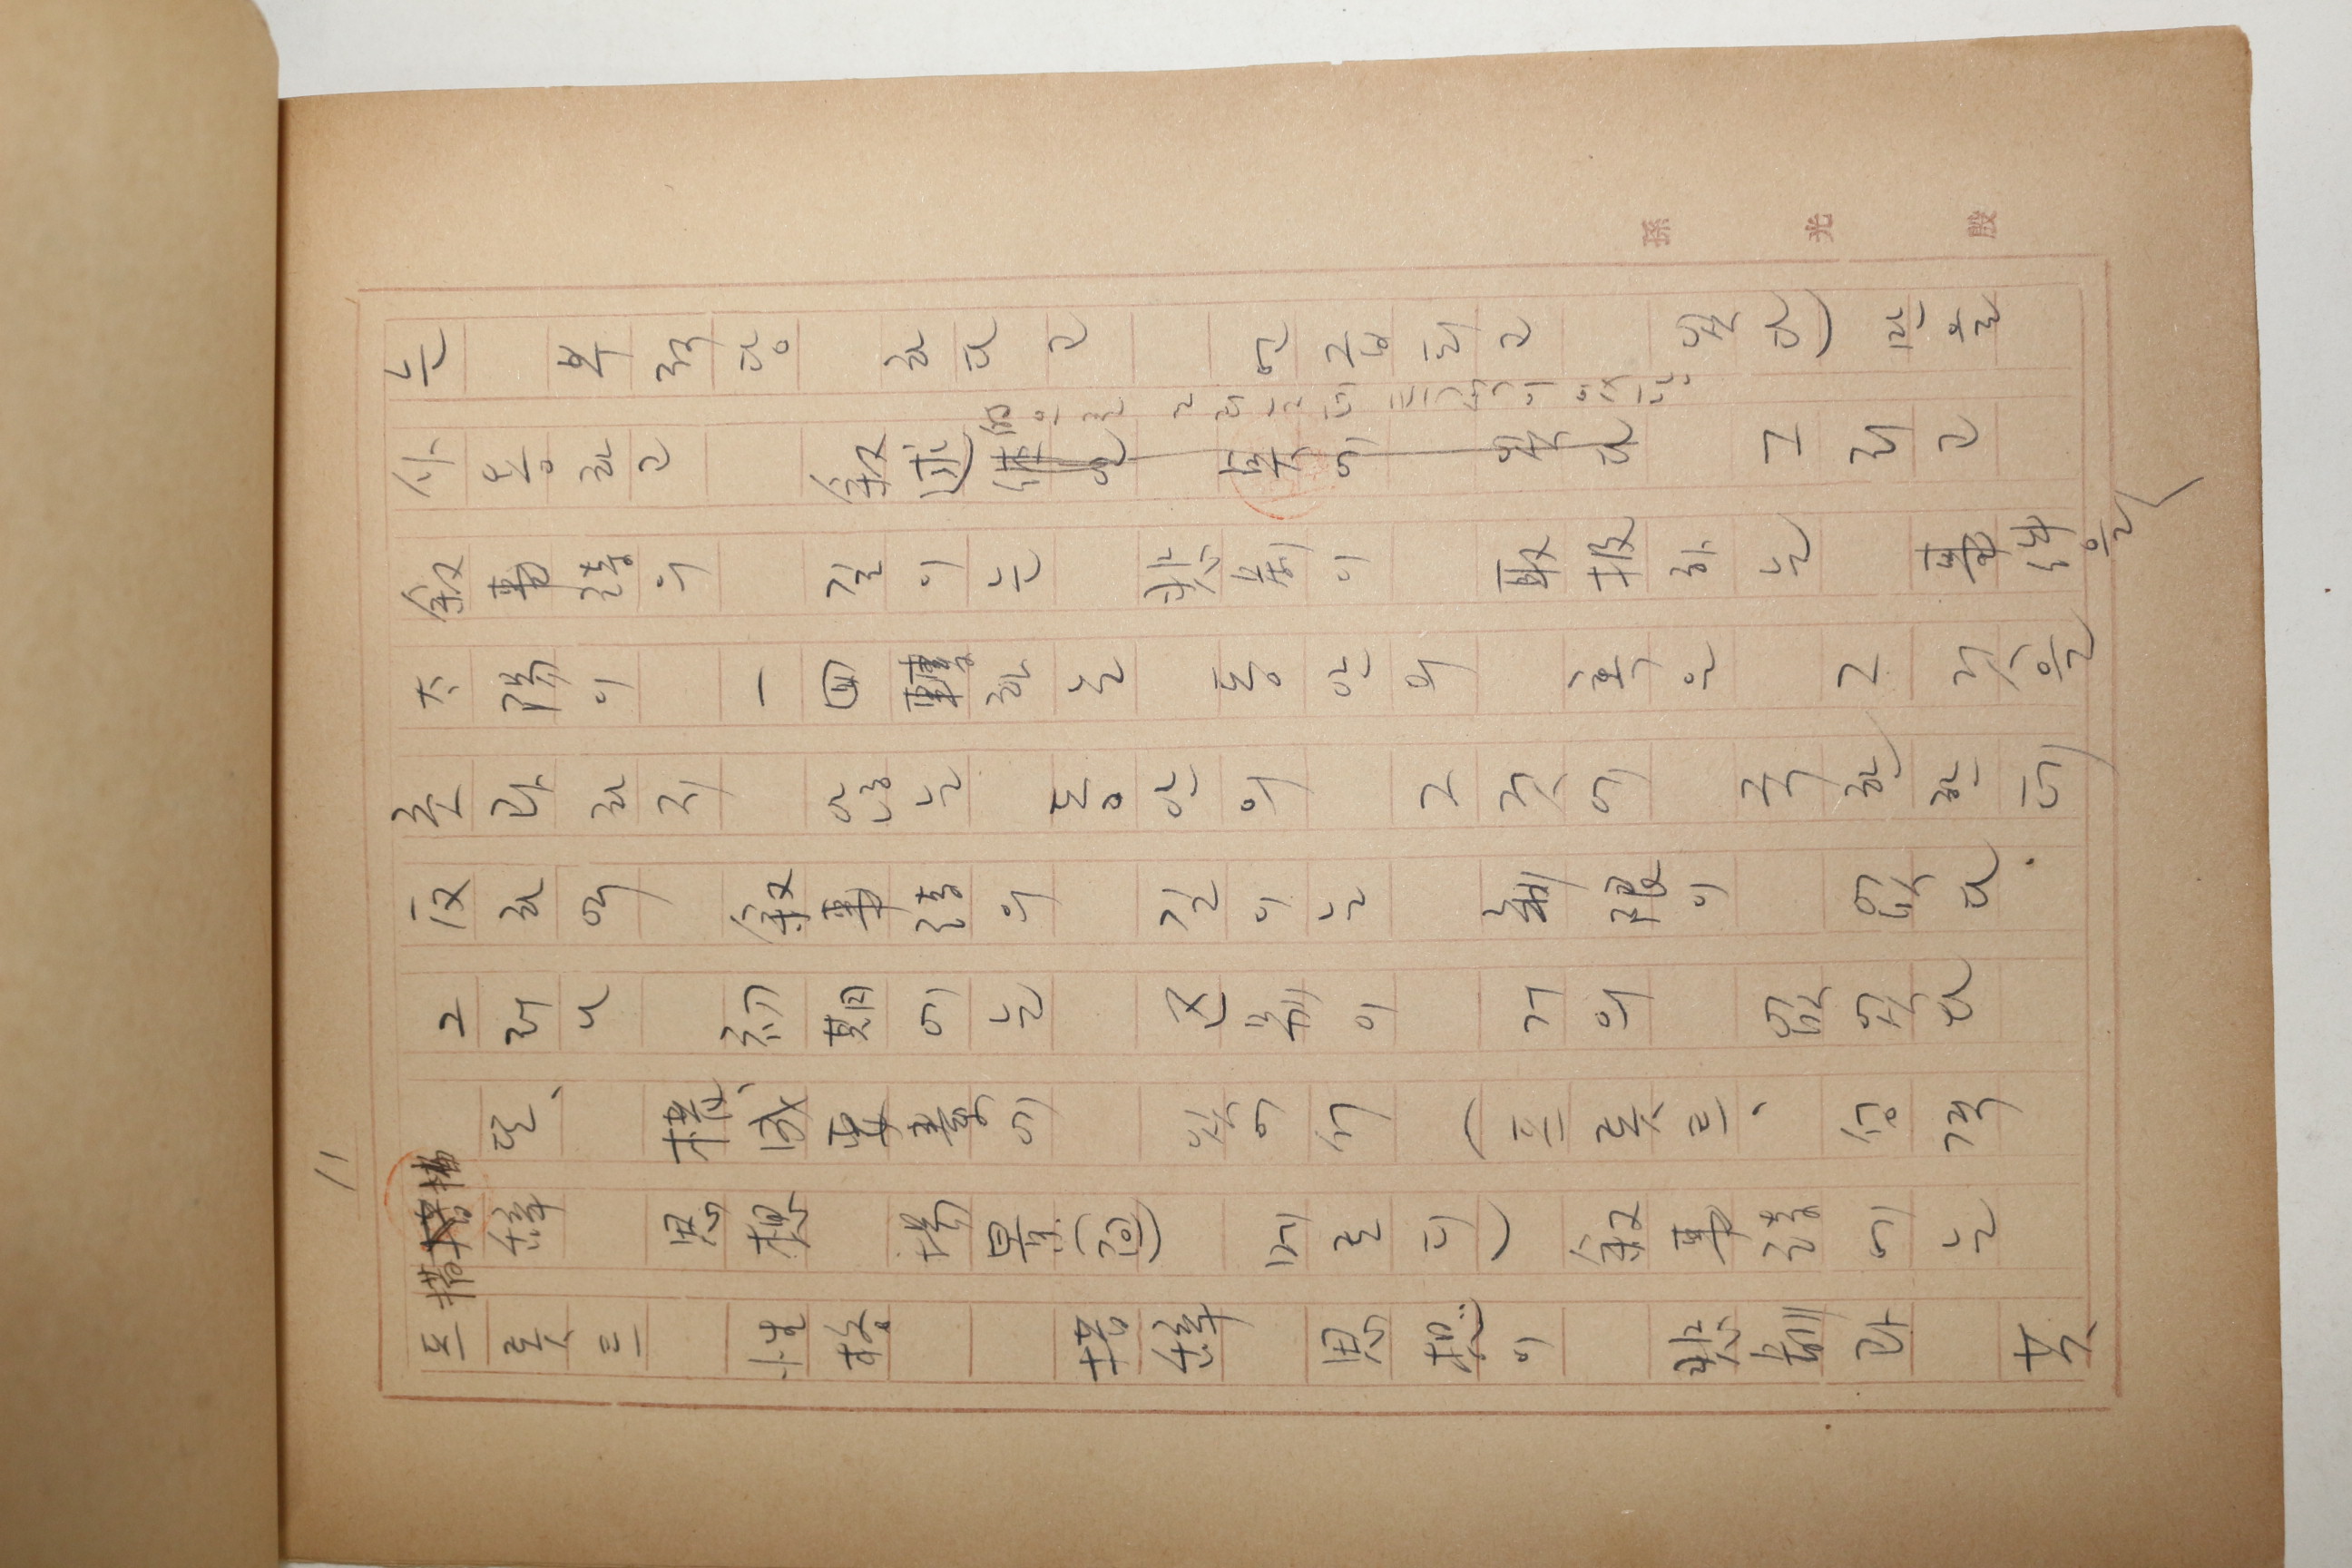 11
는 부적당 하다고 언급되고 있다) 만을
사용하고 叙述体的으로 그리고
叙事詩의 길이는 悲劇이 取扱하는 事件을
太陽이 一回轉하는 동안의 혹은 그것을
초과하지 않는 동안의 그것에 국한한데
反하여 叙事詩의 길이는 制限이 없다.
그러나 初期에는 区別이 거의 없었다
또、 構成要素에 있어서 (프롯트、 성격
措辞 思想 場景(面) 메로디) 叙事詩에는
프롯트 性格 措辞 思想이 悲劇과 共
孫 光 殷